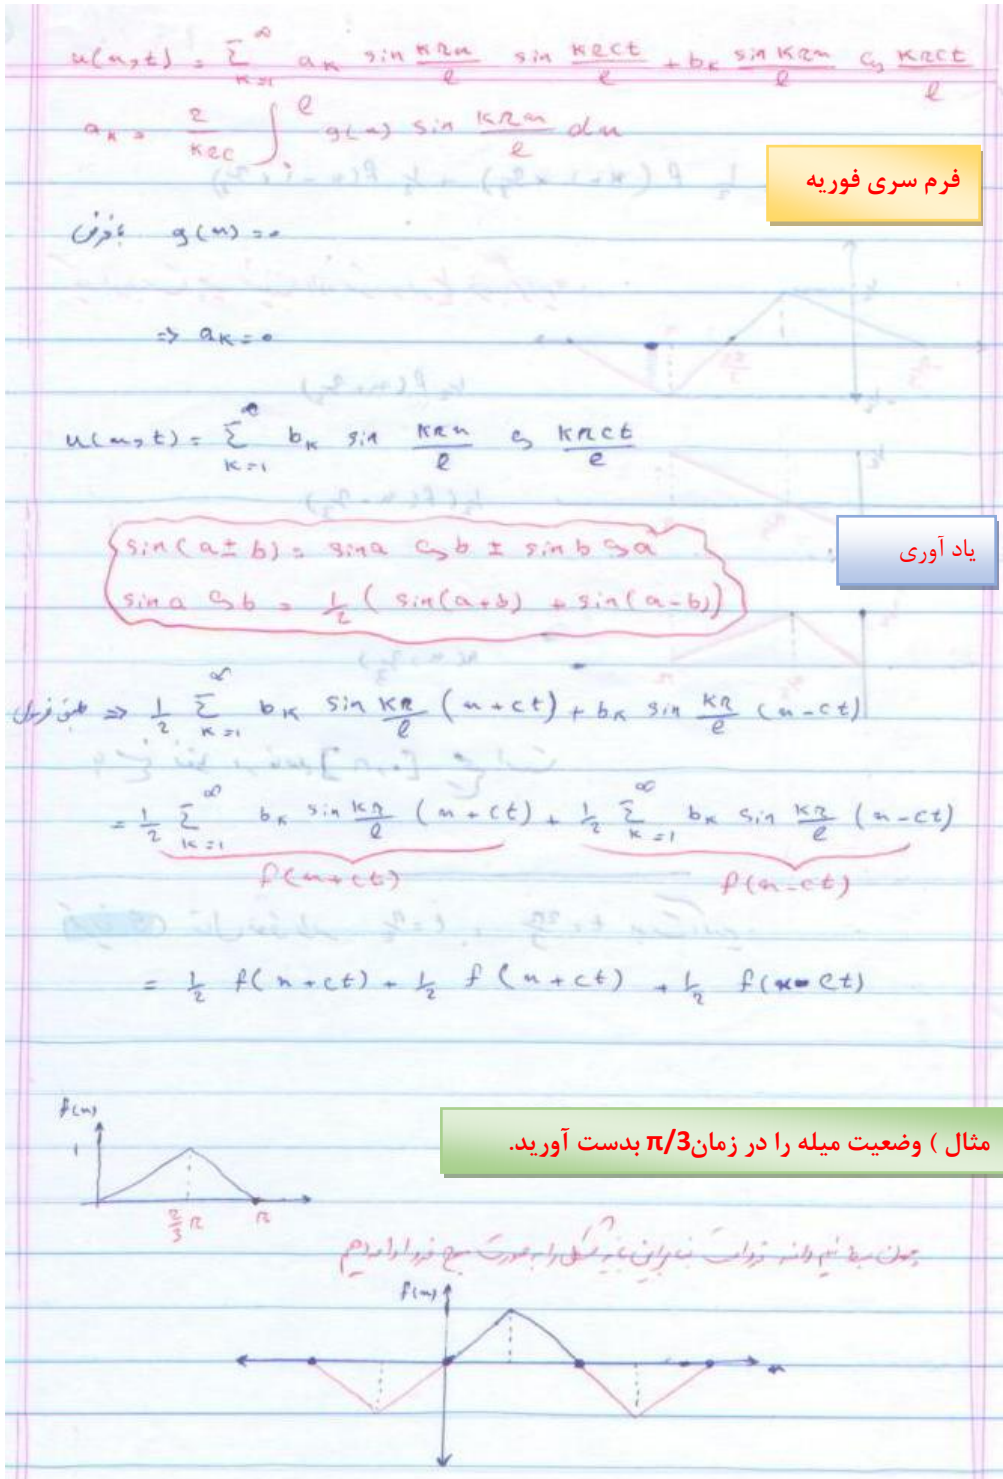 u(x,t) = Σ_{k=1}^{∞} a_k sin kπx/l sin kπct/l + b_k sin kπx/l cos kπct/l
a_k = 2/kπc ∫_0^l g(x) sin kπx/l dx
فرم سری فوریه
بافرض g(x) = 0
=> a_k = 0
u(x,t) = Σ_{k=1}^{∞} b_k sin kπx/l cos kπct/l
یاد آوری
sin(a ± b) = sin a cos b ± sin b cos a
sin a cos b = 1/2 ( sin(a+b) + sin(a-b))
طبق => 1/2 Σ_{k=1}^{∞} b_k sin kπ/l (x+ct) + b_k sin kπ/l (x-ct)
= 1/2 Σ_{k=1}^{∞} b_k sin kπ/l (x+ct) + 1/2 Σ_{k=1}^{∞} b_k sin kπ/l (x-ct)
f(x+ct) f(x-ct)
= 1/2 f(x+ct) + 1/2 f(x+ct) + 1/2 f(x-ct)
مثال ) وضعیت میله را در زمانπ/3 بدست آورید.
f(x)
1
2/3 π π
f(x)
x